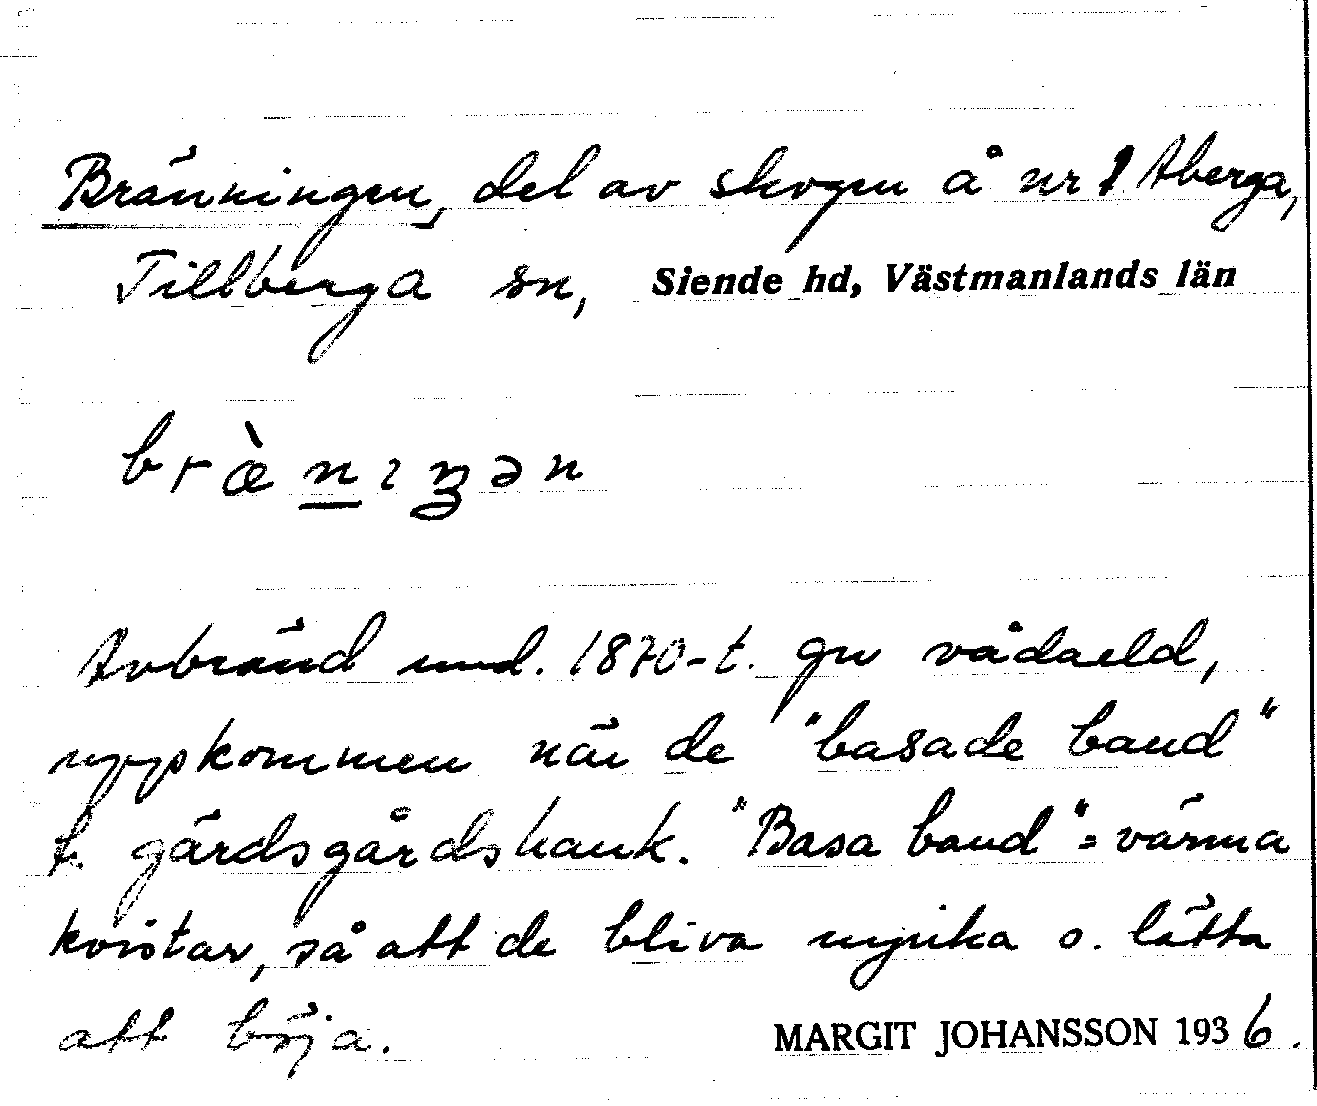 Bränningen, del av skogen å nr 1 Åberga,
Tillberga sn, Siende hd, Västmanlands län
bræ̀nıŋən
Avbränd und. 1870-t. gm vådaeld,
uppkommen när de "basade band"
f. gärdsgårdshank. "Basa band" = värma
kvistar, så att de bliva mjuka o. lätta
att böja.
MARGIT JOHANSSON 1936.